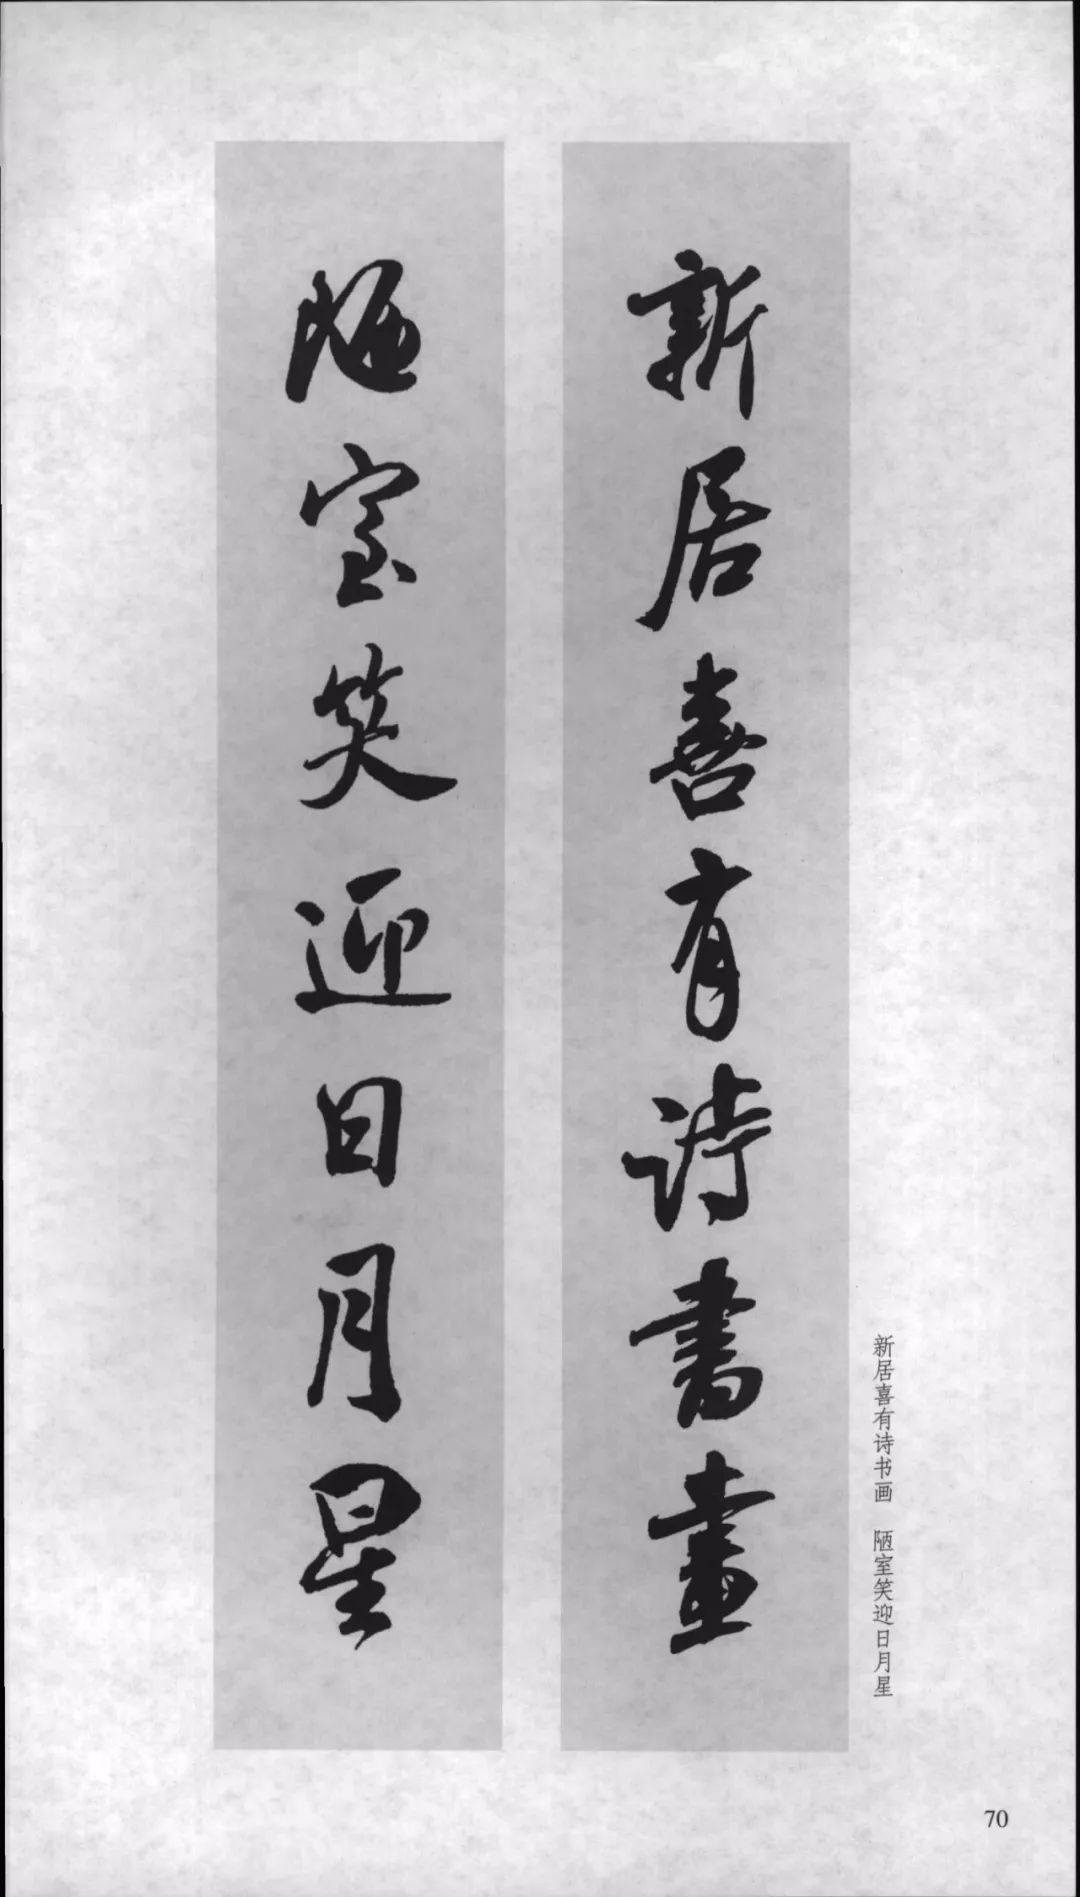 新居喜有詩書畫
陋室笑迎日月星
新居喜有诗书画 陋室笑迎日月星
70